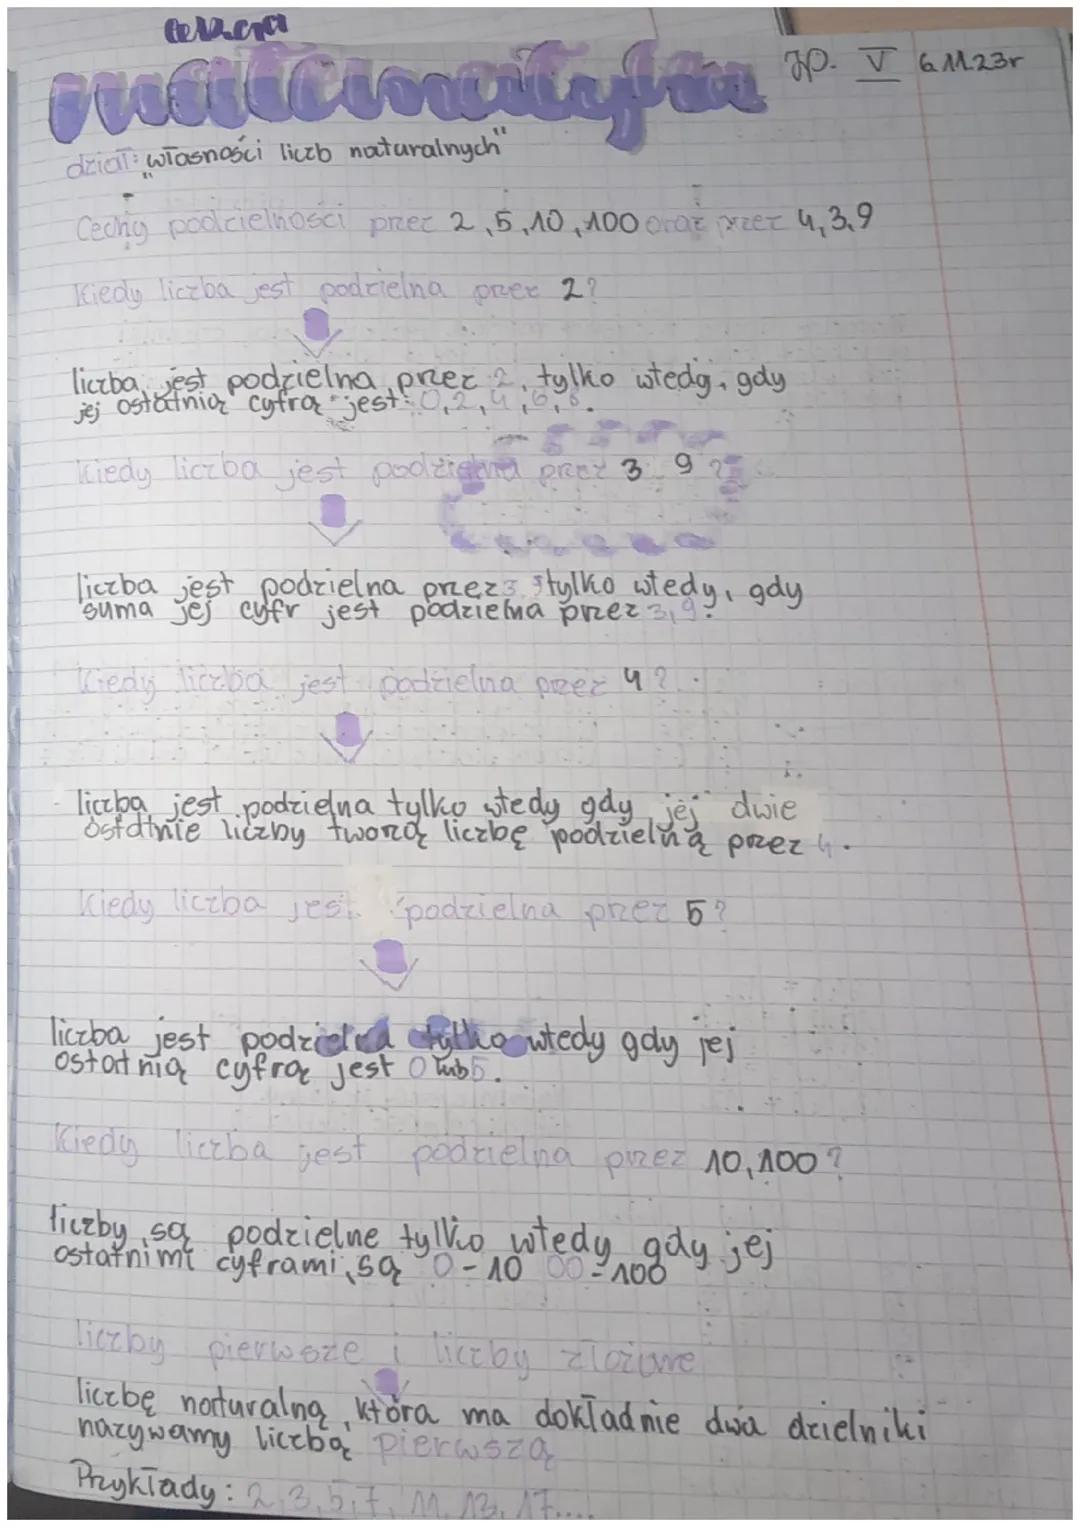 matematyka kp. V 6.11.23r
dział: "własności liczb naturalnych"
Cechy podzielności przez 2, 5, 10, 100 oraz przez 4, 3, 9
Kiedy liczba jest podzielna przez 2?
liczba jest podzielna przez 2, tylko wtedy, gdy
jej ostatnią cyfrą jest: 0, 2, 4, 6, 8.
Kiedy liczba jest podzielna przez 3 9?
liczba jest podzielna przez 3, 9 tylko wtedy, gdy
suma jej cyfr jest podzielna przez 3, 9.
Kiedy liczba jest podzielna przez 4?
liczba jest podzielna tylko wtedy gdy jej dwie
ostatnie liczby tworzą liczbę podzielną przez 4.
Kiedy liczba jest podzielna przez 5?
liczba jest podzielna tylko wtedy gdy jej
ostatnią cyfrą jest 0 lub 5.
Kiedy liczba jest podzielna przez 10, 100?
liczby są podzielne tylko wtedy gdy jej
ostatnimi cyframi są 0-10 00-100
liczby pierwsze i liczby złożone
liczbę naturalną, która ma dokładnie dwa dzielniki
nazywamy liczbą pierwszą
Przykłady: 2, 3, 5, 7, 11, 13, 17....